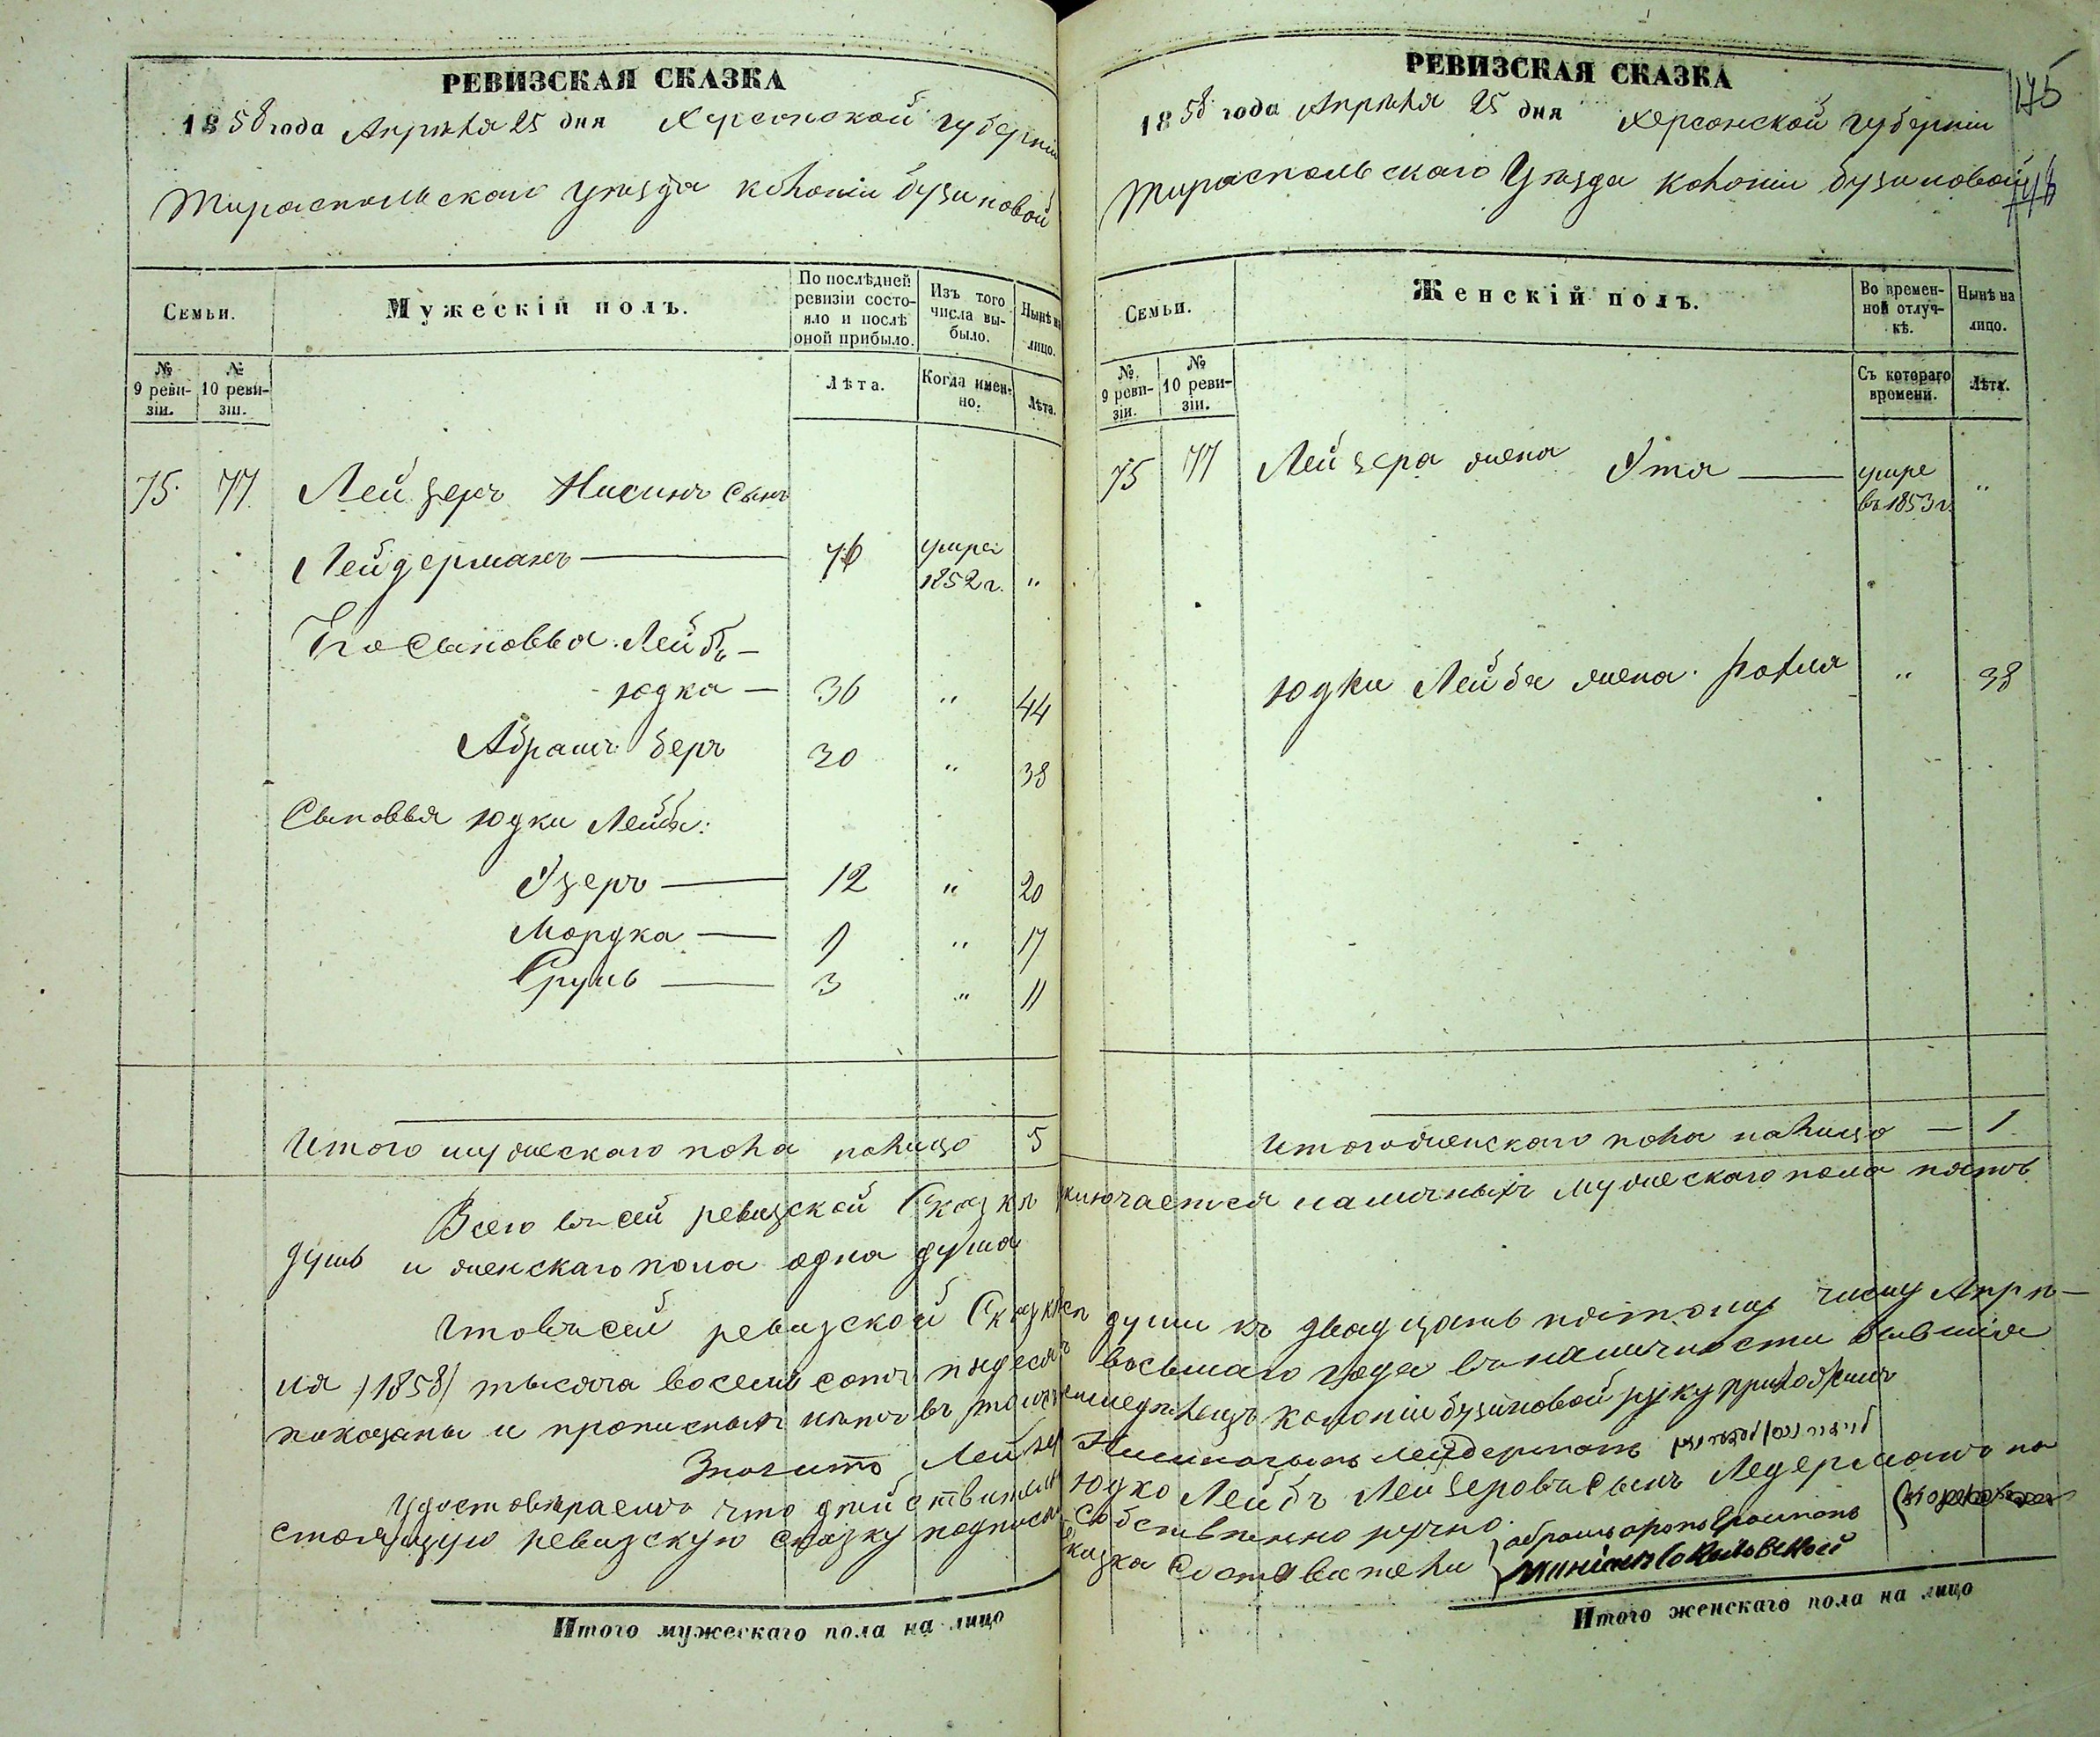 РЕВИЗСКАЯ СКАЗКА
1858 года Апрѣля 25 дня Херсонской губерніи
Тираспольскаго Уѣзда колоніи бузиновой
Семьи.
Мужескій полъ.
По послѣдней ревизіи состо-
яло и послѣ
оной прибыло.
Изъ того
числа вы-
было.
Нынѣ на
лицо.
№
9 реви-
зіи.
№
10 реви-
зіи.
Лѣта.
Когда имен-
но.
Лѣта.
75 77 Лейзеръ Нисинъ сынъ
Лейдерманъ 76 умре 1852 г. „
Его Сыновья Лейбъ
Юдка 36 „ 44
Абрамъ Беръ 30 „ 38
Сыновья Юдки Лейбы:
Узеръ 12 „ 20
Мордка 9 „ 17
Сруль 3 „ 11
Итого мужескаго пола налицо 5
РЕВИЗСКАЯ СКАЗКА
175
1858 года Апрѣля 25 дня Херсонской губерніи
Тираспольскаго Уѣзда колоніи бузиновой
Семьи.
Женскій полъ.
Во времен-
ной отлуч-
кѣ.
Нынѣ на
лицо.
№
9 реви-
зіи.
№
10 реви-
зіи.
Съ котораго
времени.
Лѣта.
75 77 Лейзера жена Ута умре
въ 1853 г. „
Юдки Лейбы жена Рахля „ 38
Итого женскаго пола налицо — 1
Всего въ сей ревизской Сказкѣ заключается наличныхъ мужескаго пола пять
душъ и женскаго пола одна душа
Что въ сей ревизской Сказкѣ всѣ души къ двадцать пятому числу Апрѣ-
ля /1858/ тысяча восемь сотъ пядесятъ восьмаго года въ наличности бывшія
показаны и прописныхъ нѣтъ въ томъ колоніи бузиновой руку приложилъ
Лейдерманъ
Удостовѣраемъ что дѣйствительно Юдко Лейбъ Лейзеровъ сынъ Ледерманъ на
стоящую ревизскую сказку подписалъ собственно ручно.
Сказка Составители
Итого мужескаго пола на лицо
Итого женскаго пола на лицо